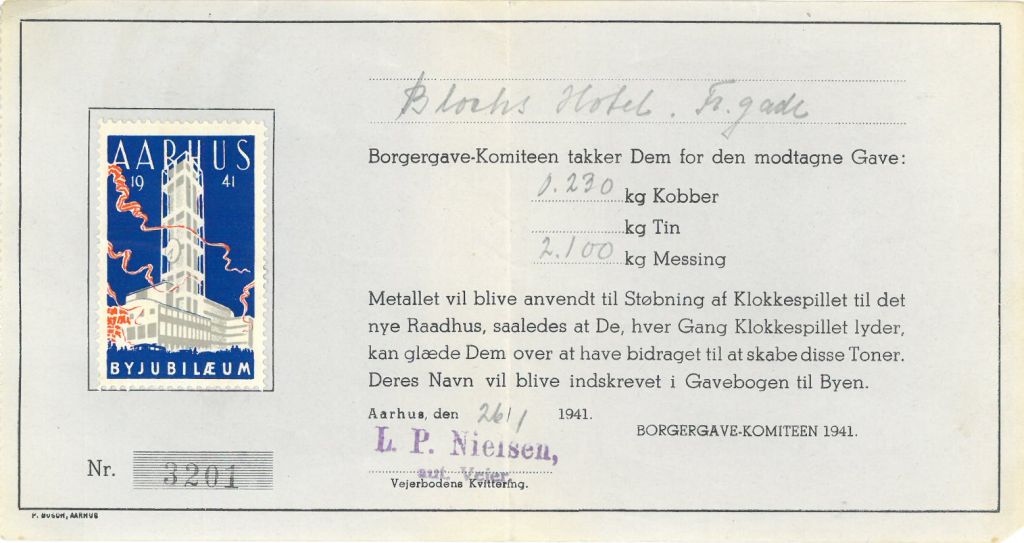 Blochs Hotel. Fr. gade
Borgergave-Komiteen takker Dem for den modtagne Gave:
0.230 kg Kobber
kg Tin
2.100 kg Messing
Metallet vil blive anvendt til Støbning af Klokkespillet til det
nye Raadhus, saaledes at De, hver Gang Klokkespillet lyder,
kan glæde Dem over at have bidraget til at skabe disse Toner.
Deres Navn vil blive indskrevet i Gavebogen til Byen.
Aarhus, den 26/1 1941.
BORGERGAVE-KOMITEEN 1941.
L. P. Nielsen,
aut. Vejer
Vejerbodens Kvittering.
AARHUS
19 41
BYJUBILÆUM
Nr. 3201
P. BUSCH, AARHUS